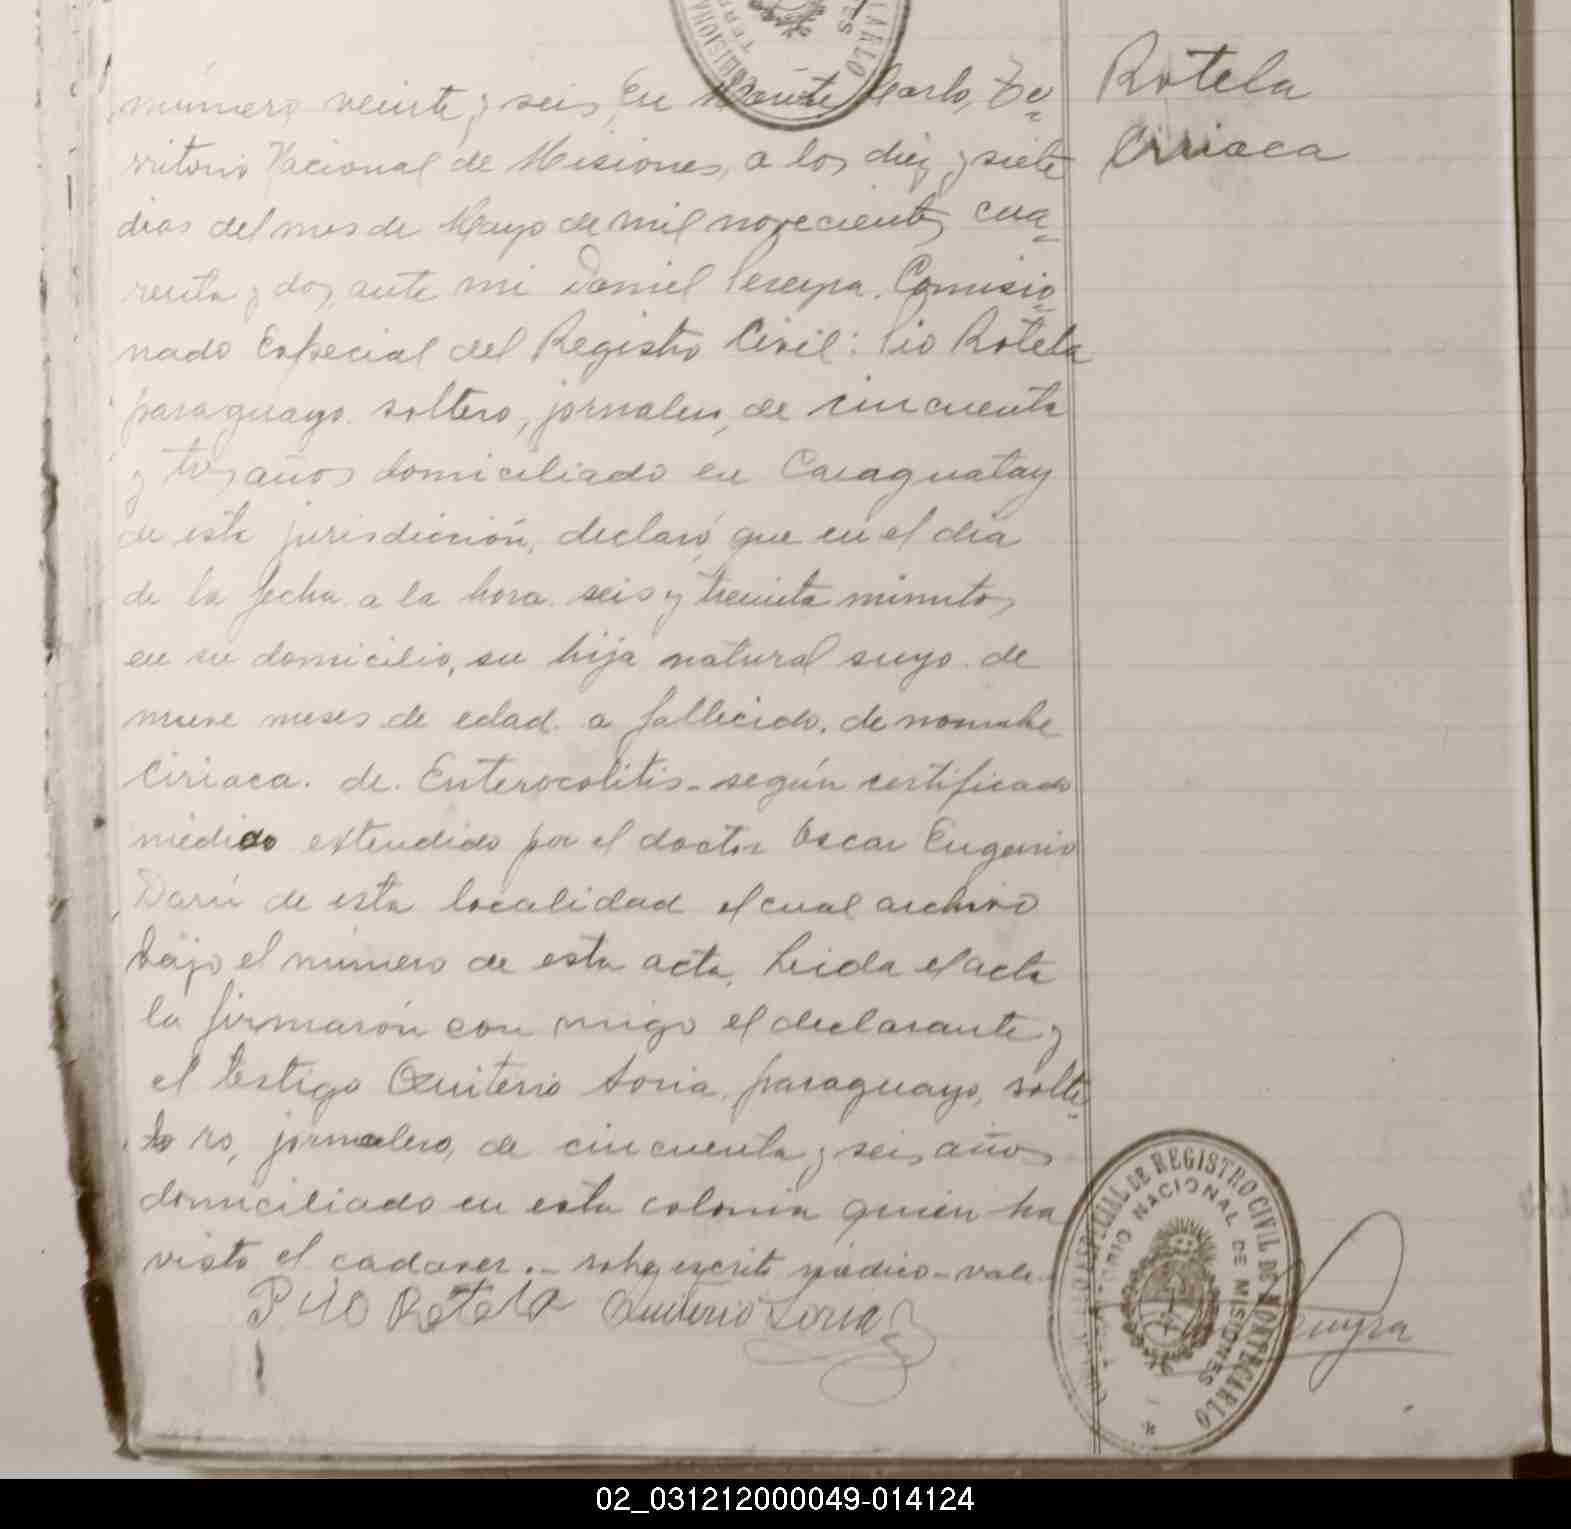 Rotela
Ciriaca
número veinte y seis, En Monte Carlo, Te-
rritorio Nacional de Misiones, a los diez y siete
dias del mes de Mayo de mil novecientos cua-
renta y dos, ante mi Daniel Pereyra. Comisio-
nado Especial del Registro Civil: Pio Rotela
paraguayo. soltero, jornalero, de cincuenta
y tres años domiciliado en Caraguatay
de esta jurisdicción, declaró, que en el dia
de la fecha a la hora seis y treinta minutos
en su domicilio, su hija natural suyo. de
nueve meses de edad. a fallecido. de nombre
Ciriaca. de. Enterocolitis - según certificado
médido extendido por el doctor Oscar Eugenio
Darú de esta localidad el cual archivo
bajo el número de esta acta. Leida el acta
la firmarón con migo el declarante y
el testigo Quiterio Soria, paraguayo, solte-
ro, jornalero, de cincuenta y seis años
domiciliado en esta colonia quien ha
visto el cadaver. - sobre escrito médico - vale -
Pio Rotela Quiterio Soria
REGISTRO CIVIL DE MONTECARLO
NACIONAL DE MISIONES
02_031212000049-014124